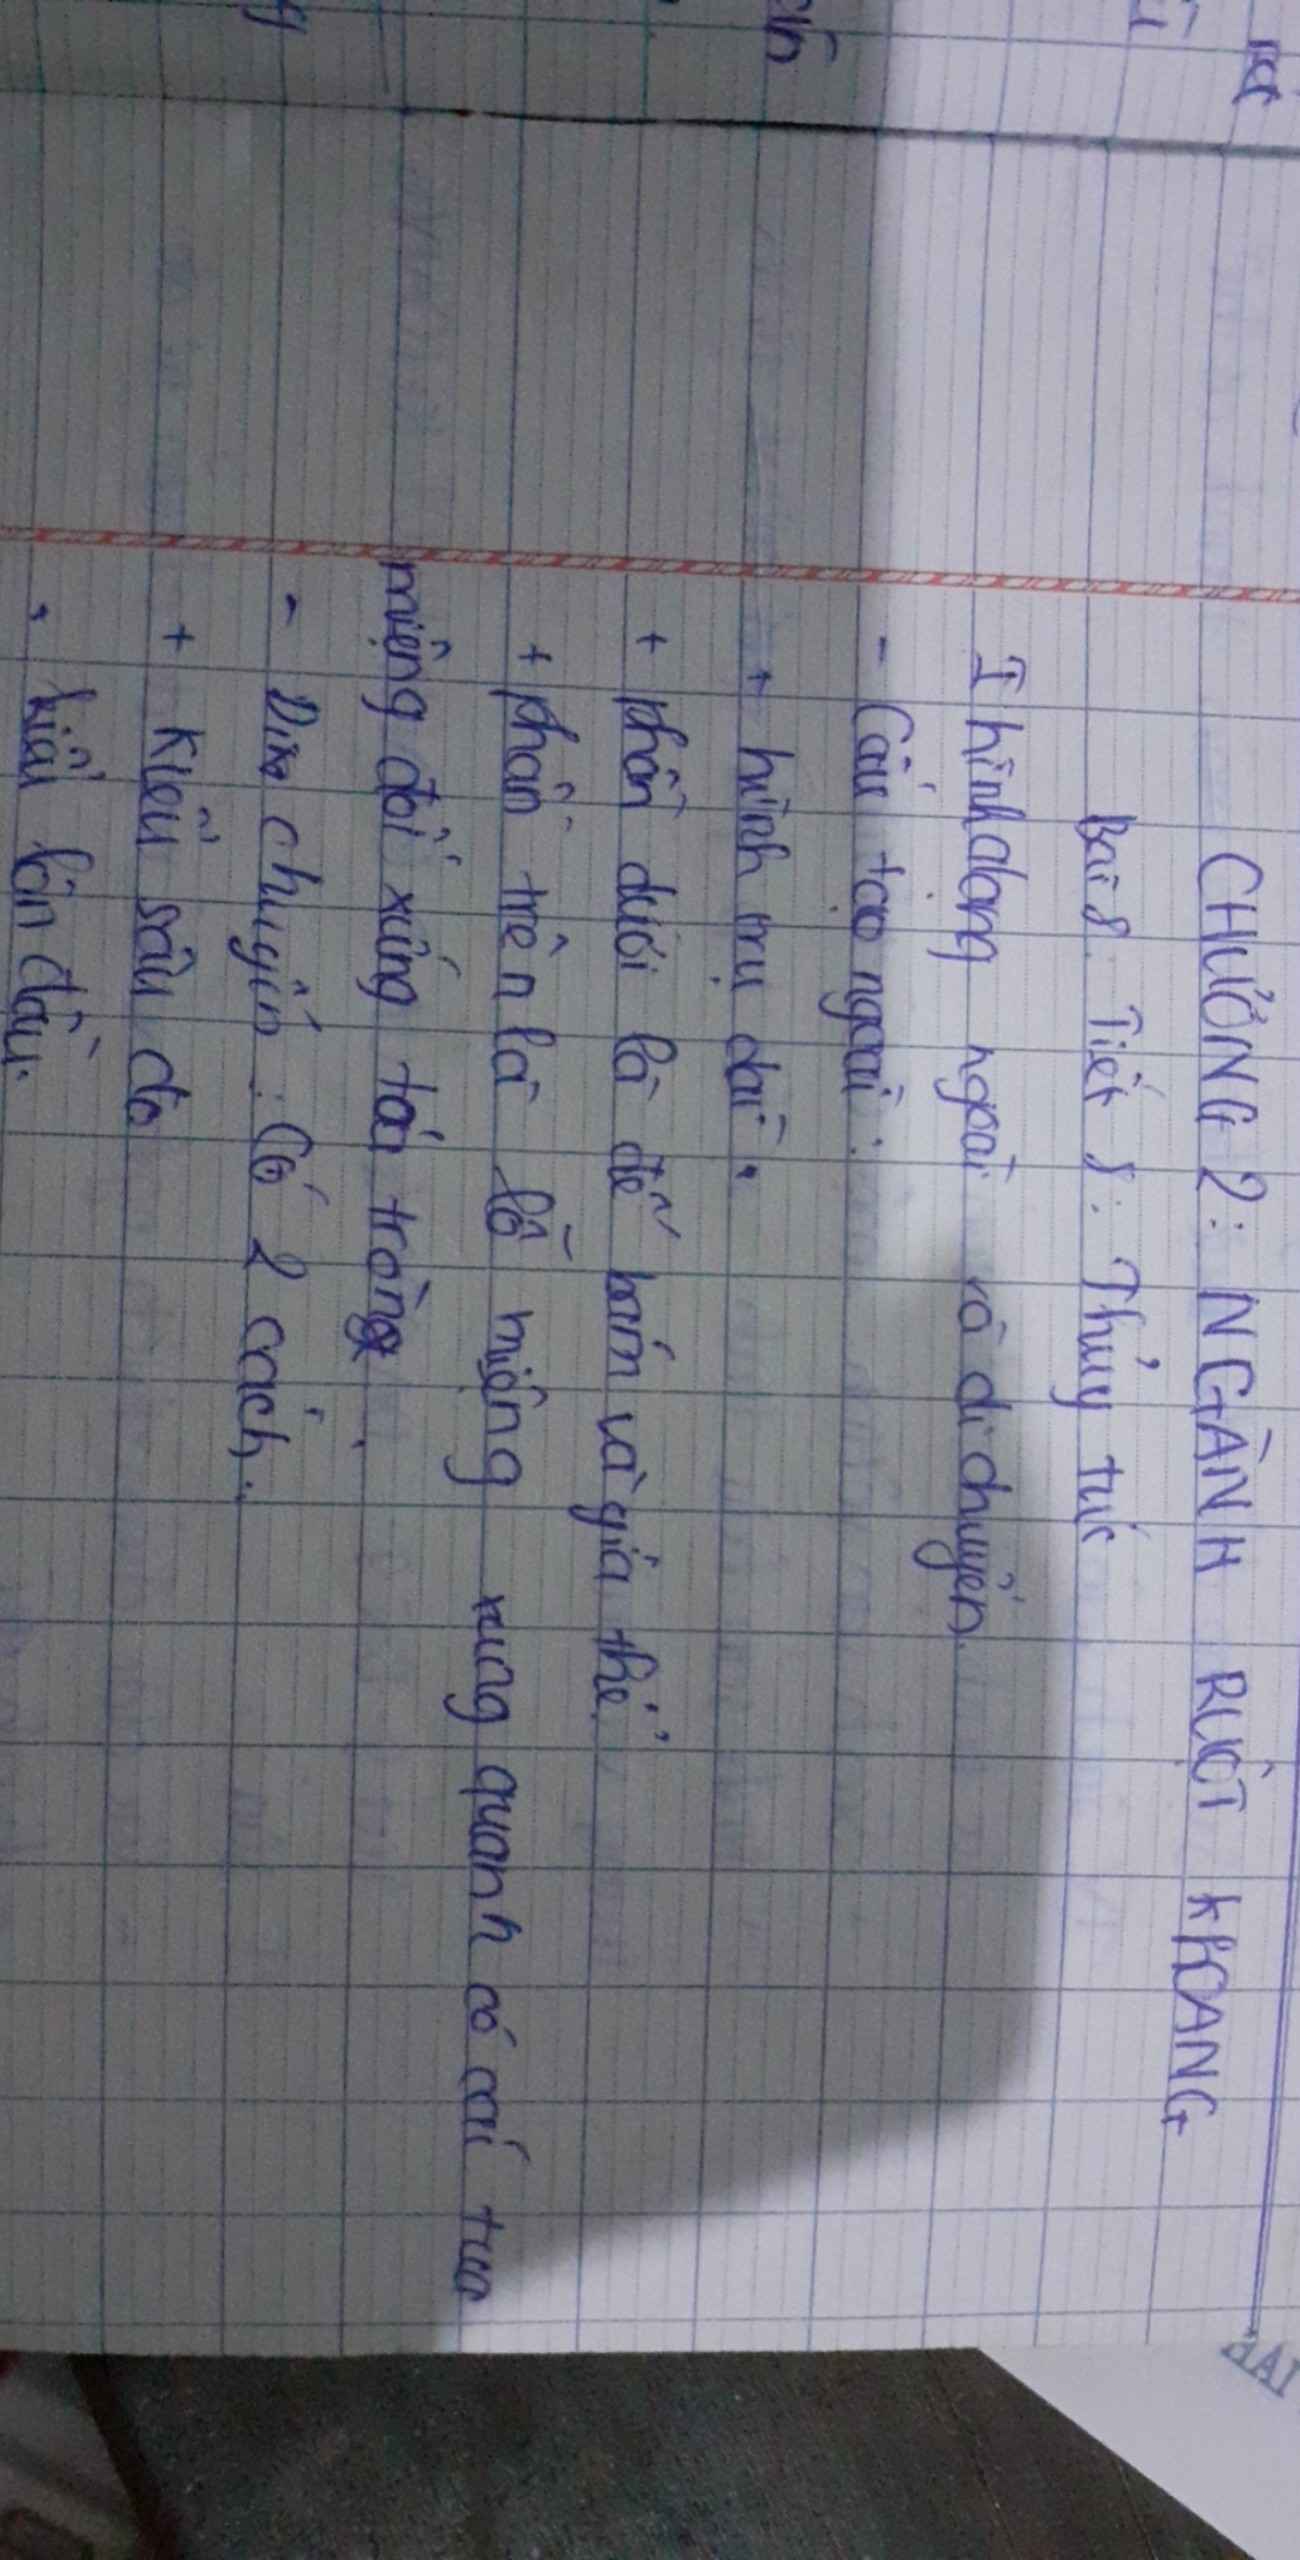 CHƯƠNG 2: NGÀNH RUỘT KHOANG
Bài 8: Tiết 8: Thủy tức
I hình dạng ngoài và di chuyển.
- Cấu tạo ngoài:
+ hình trụ dài.
+ phần dưới là đế bám và giá thể.
+ phần trên là lỗ miệng xung quanh có cái tua
miệng đối xứng tỏa tròng.
- Dix chuyển: Có 2 cách.
+ Kiểu sâu đo
. kiểu lộn đầu.